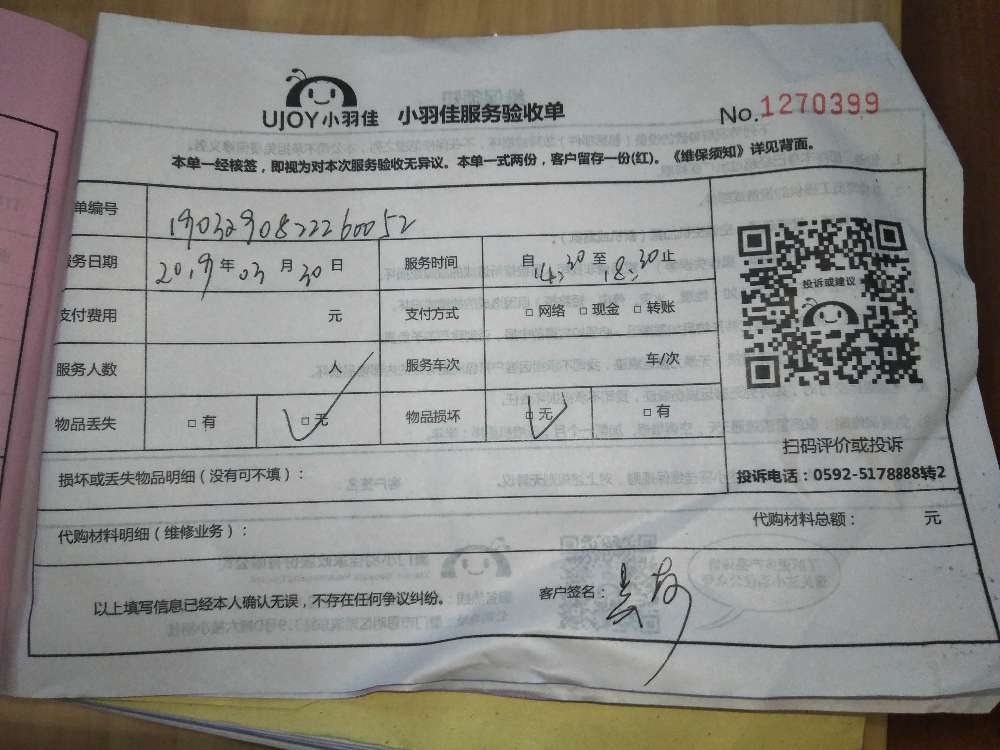 UJOY小羽佳 小羽佳服务验收单 No.1270399
本单一经核签，即视为对本次服务验收无异议。本单一式两份，客户留存一份(红)。《维保须知》详见背面。
单编号 1903290822260052
服务日期 2019年03月30日 服务时间 自14:30至18:30止
支付费用 元 支付方式 □网络 □现金 □转账
服务人数 人 服务车次 车/次
物品丢失 □有 □无 物品损坏 □无 □有
投诉或建议
扫码评价或投诉
投诉电话：0592-5178888转2
损坏或丢失物品明细(没有可不填)：
代购材料明细(维修业务)： 代购材料总额： 元
以上填写信息已经本人确认无误，不存在任何争议纠纷。 客户签名：